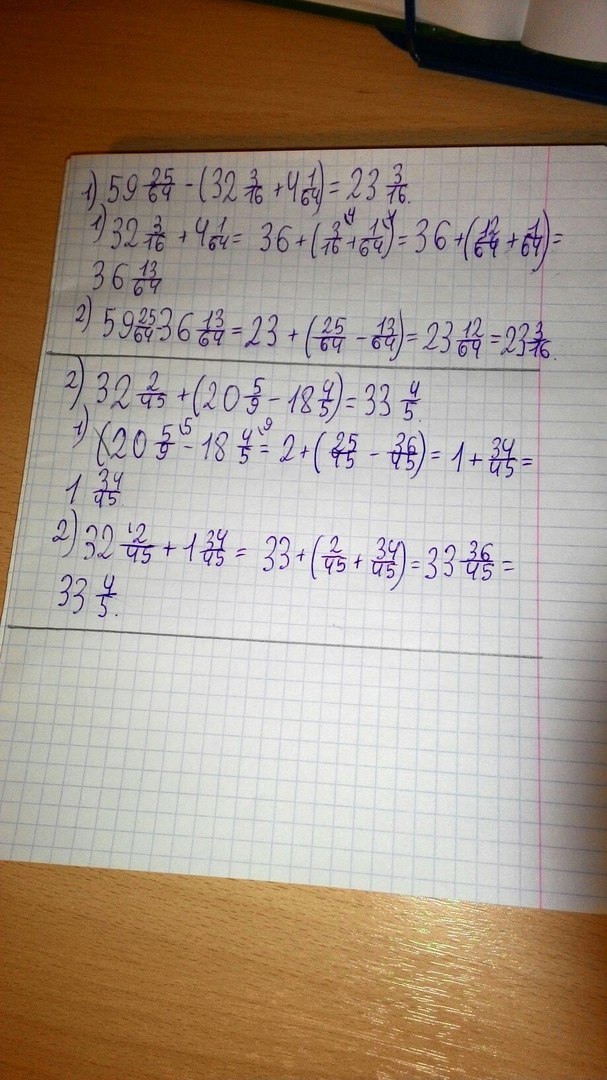 1) 59 25/64 - (32 3/16 + 4 1/64) = 23 3/16.
1) 32 3/16 + 4 1/64 = 36 + (3/16 ⁴ + 1/64 ¹) = 36 + (12/64 + 1/64) =
36 13/64
2) 59 25/64 - 36 13/64 = 23 + (25/64 - 13/64) = 23 12/64 = 23 3/16.
2) 32 2/45 + (20 5/9 - 18 4/5) = 33 4/5.
1) (20 5/9 ⁵ - 18 4/5 ⁹ = 2 + (25/45 - 36/45) = 1 + 34/45 =
1 34/45
2) 32 2/45 + 1 34/45 = 33 + (2/45 + 34/45) = 33 36/45 =
33 4/5.